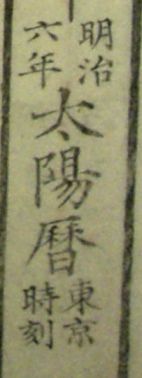 明治
六年
太陽暦
東京
時刻